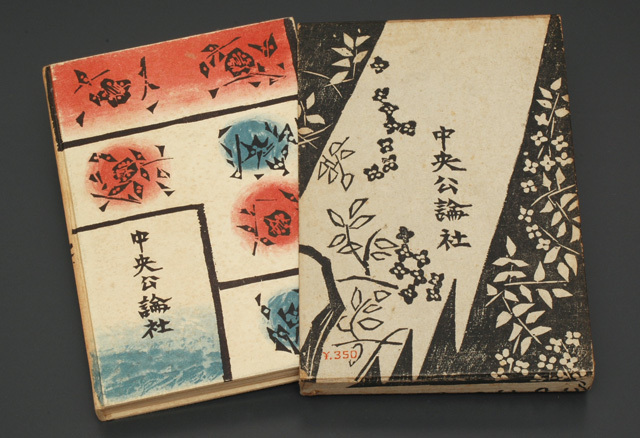 中央公論社
中央公論社
Y.350